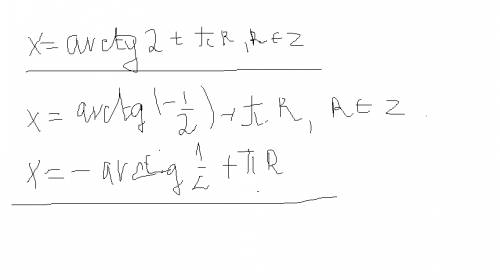 x = arctg 2 + πk, k ∈ Z
x = arctg(-1/2) + πk, k ∈ Z
x = - arctg 1/2 + πk